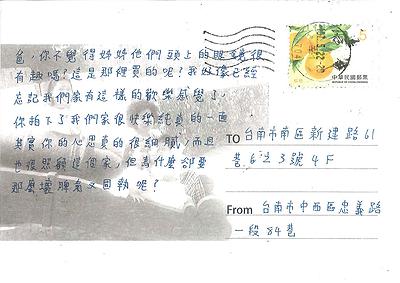 爸,你不覺得姊姊他們頭上的眼鏡很
有趣嗎?這是那裡買的呢?我好像已經
忘記我們家有這樣的歡樂感覺了,
你拍下了我們家很快樂純真的一面
其實你的心思真的很細膩,而且
也很照顧這個家,但為什麼都要
那麼壞脾氣又固執呢?
中華民國郵票
REPUBLIC OF CHINA (TAIWAN)
5
TO 台南市南區新建路61
巷6之3號4F
From 台南市中西區忠義路
一段84巷